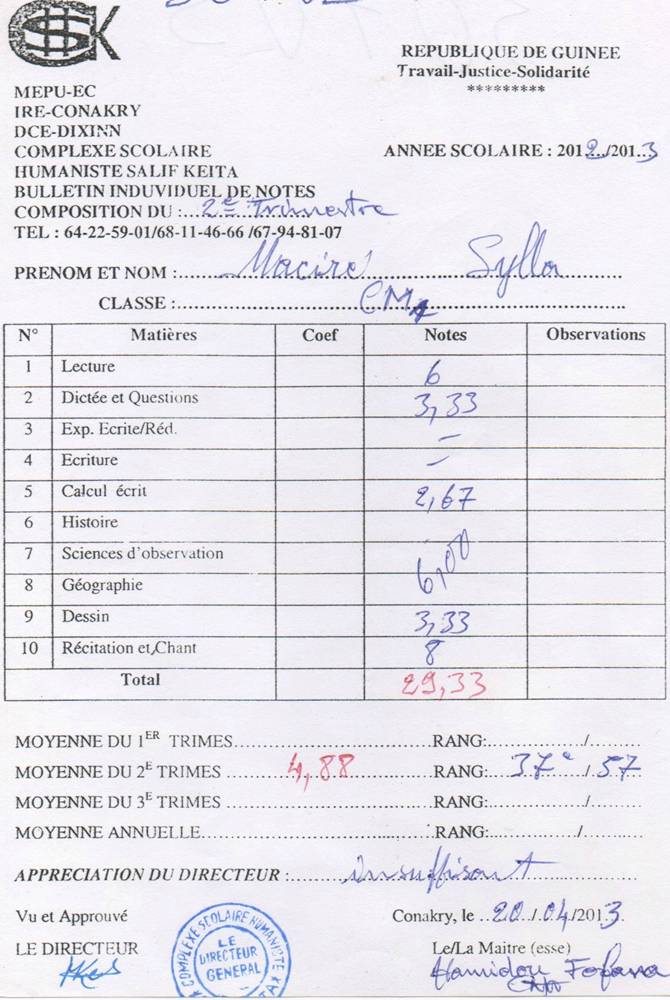 REPUBLIQUE DE GUINEE
Travail-Justice-Solidarité
*********
MEPU-EC
IRE-CONAKRY
DCE-DIXINN
COMPLEXE SCOLAIRE
HUMANISTE SALIF KEITA
ANNEE SCOLAIRE : 2012../2013
BULLETIN INDUVIDUEL DE NOTES
COMPOSITION DU :....2e Trimestre
TEL : 64-22-59-01/68-11-46-66 /67-94-81-07
PRENOM ET NOM :........Maciré........Sylla........
CLASSE :........CM1........
N° Matières Coef Notes Observations
1 Lecture 6
2 Dictée et Questions 3,33
3 Exp. Ecrite/Réd. –
4 Ecriture –
5 Calcul écrit 2,67
6 Histoire
7 Sciences d'observation 6,00
8 Géographie
9 Dessin 3,33
10 Récitation et Chant 8
Total 29,33
MOYENNE DU 1ER TRIMES........RANG:......../........
MOYENNE DU 2E TRIMES ........4,88........RANG:....37e..../.57
MOYENNE DU 3E TRIMES ........RANG:......../........
MOYENNE ANNUELLE........RANG:......../........
APPRECIATION DU DIRECTEUR :........insuffisant........
Vu et Approuvé
Conakry, le ..20../.04/2013.
LE DIRECTEUR
Le/La Maitre (esse)
Hamidou Fofana
COMPLEXE SCOLAIRE HUMANISTE
LE
DIRECTEUR
GENERAL